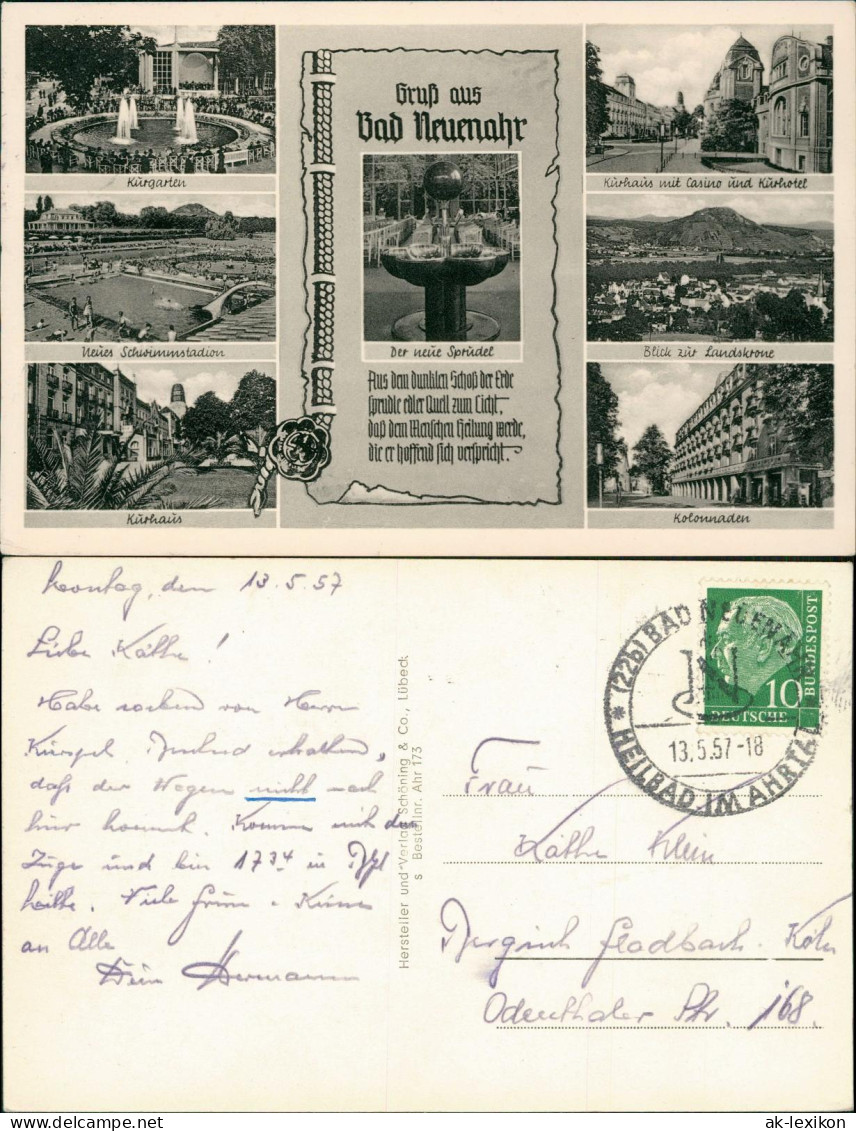 Gruß aus
Bad Neuenahr
Kurgarten
Kurhaus mit Casino und Kurhotel
Neues Schwimmstadion
Der neue Sprudel
Blick zur Landskrone
Aus dem dunklen Schoß der Erde
sprudle edler Quell zum Licht,
daß dem Menschen Heilung werde,
die er hoffend sich verspricht.
Kurhaus
Kolonnaden
Montag, den 13.5.57
Liebe Käthe!
Habe soeben von Herrn
erhalten,
daß der Wagen nicht nach
hier kommt. Komme mit dem
Zuge und bin 17 34 in
Viele Grüße + Küsse
an Alle
Dein Hermann
Hersteller und Verlag Schöning & Co., Lübeck
s Bestellnr. Ahr 173
(22b) BAD NEUENAHR
HEILBAD IM AHRTAL
13.5.57-18
10
DEUTSCHE
BUNDESPOST
Frau
Käthe Klein
Bergisch Gladbach. Köln
Odenthaler Str. 168.
ak-lexikon